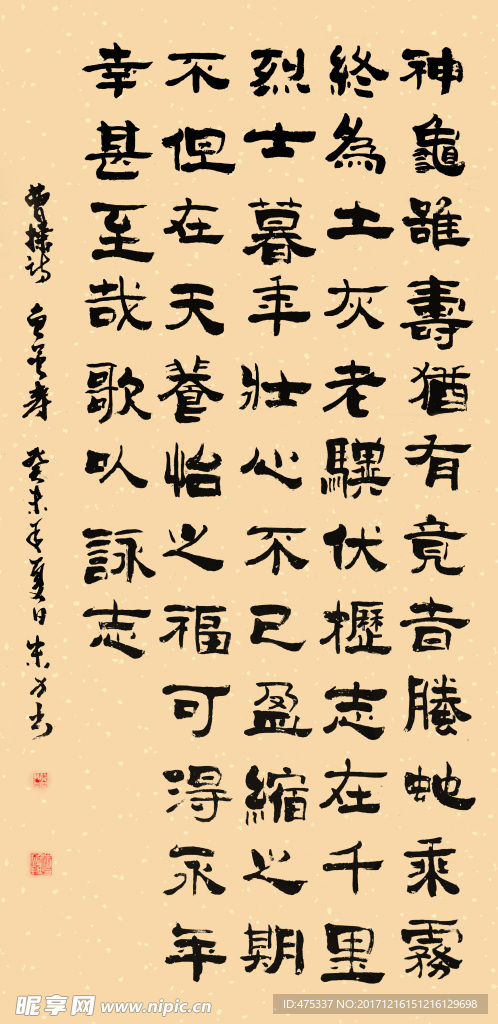 神龜雖壽猶有竟旹騰虵乘霧
終為土灰老驥伏櫪志在千里
烈士暮年壯心不已盈縮之期
不但在天養怡之福可得永年
幸甚至哉歌以詠志
曹操诗 龟虽寿 癸未年夏日
昵享网 www.nipic.cn
ID:475337 NO:20171216151216129698